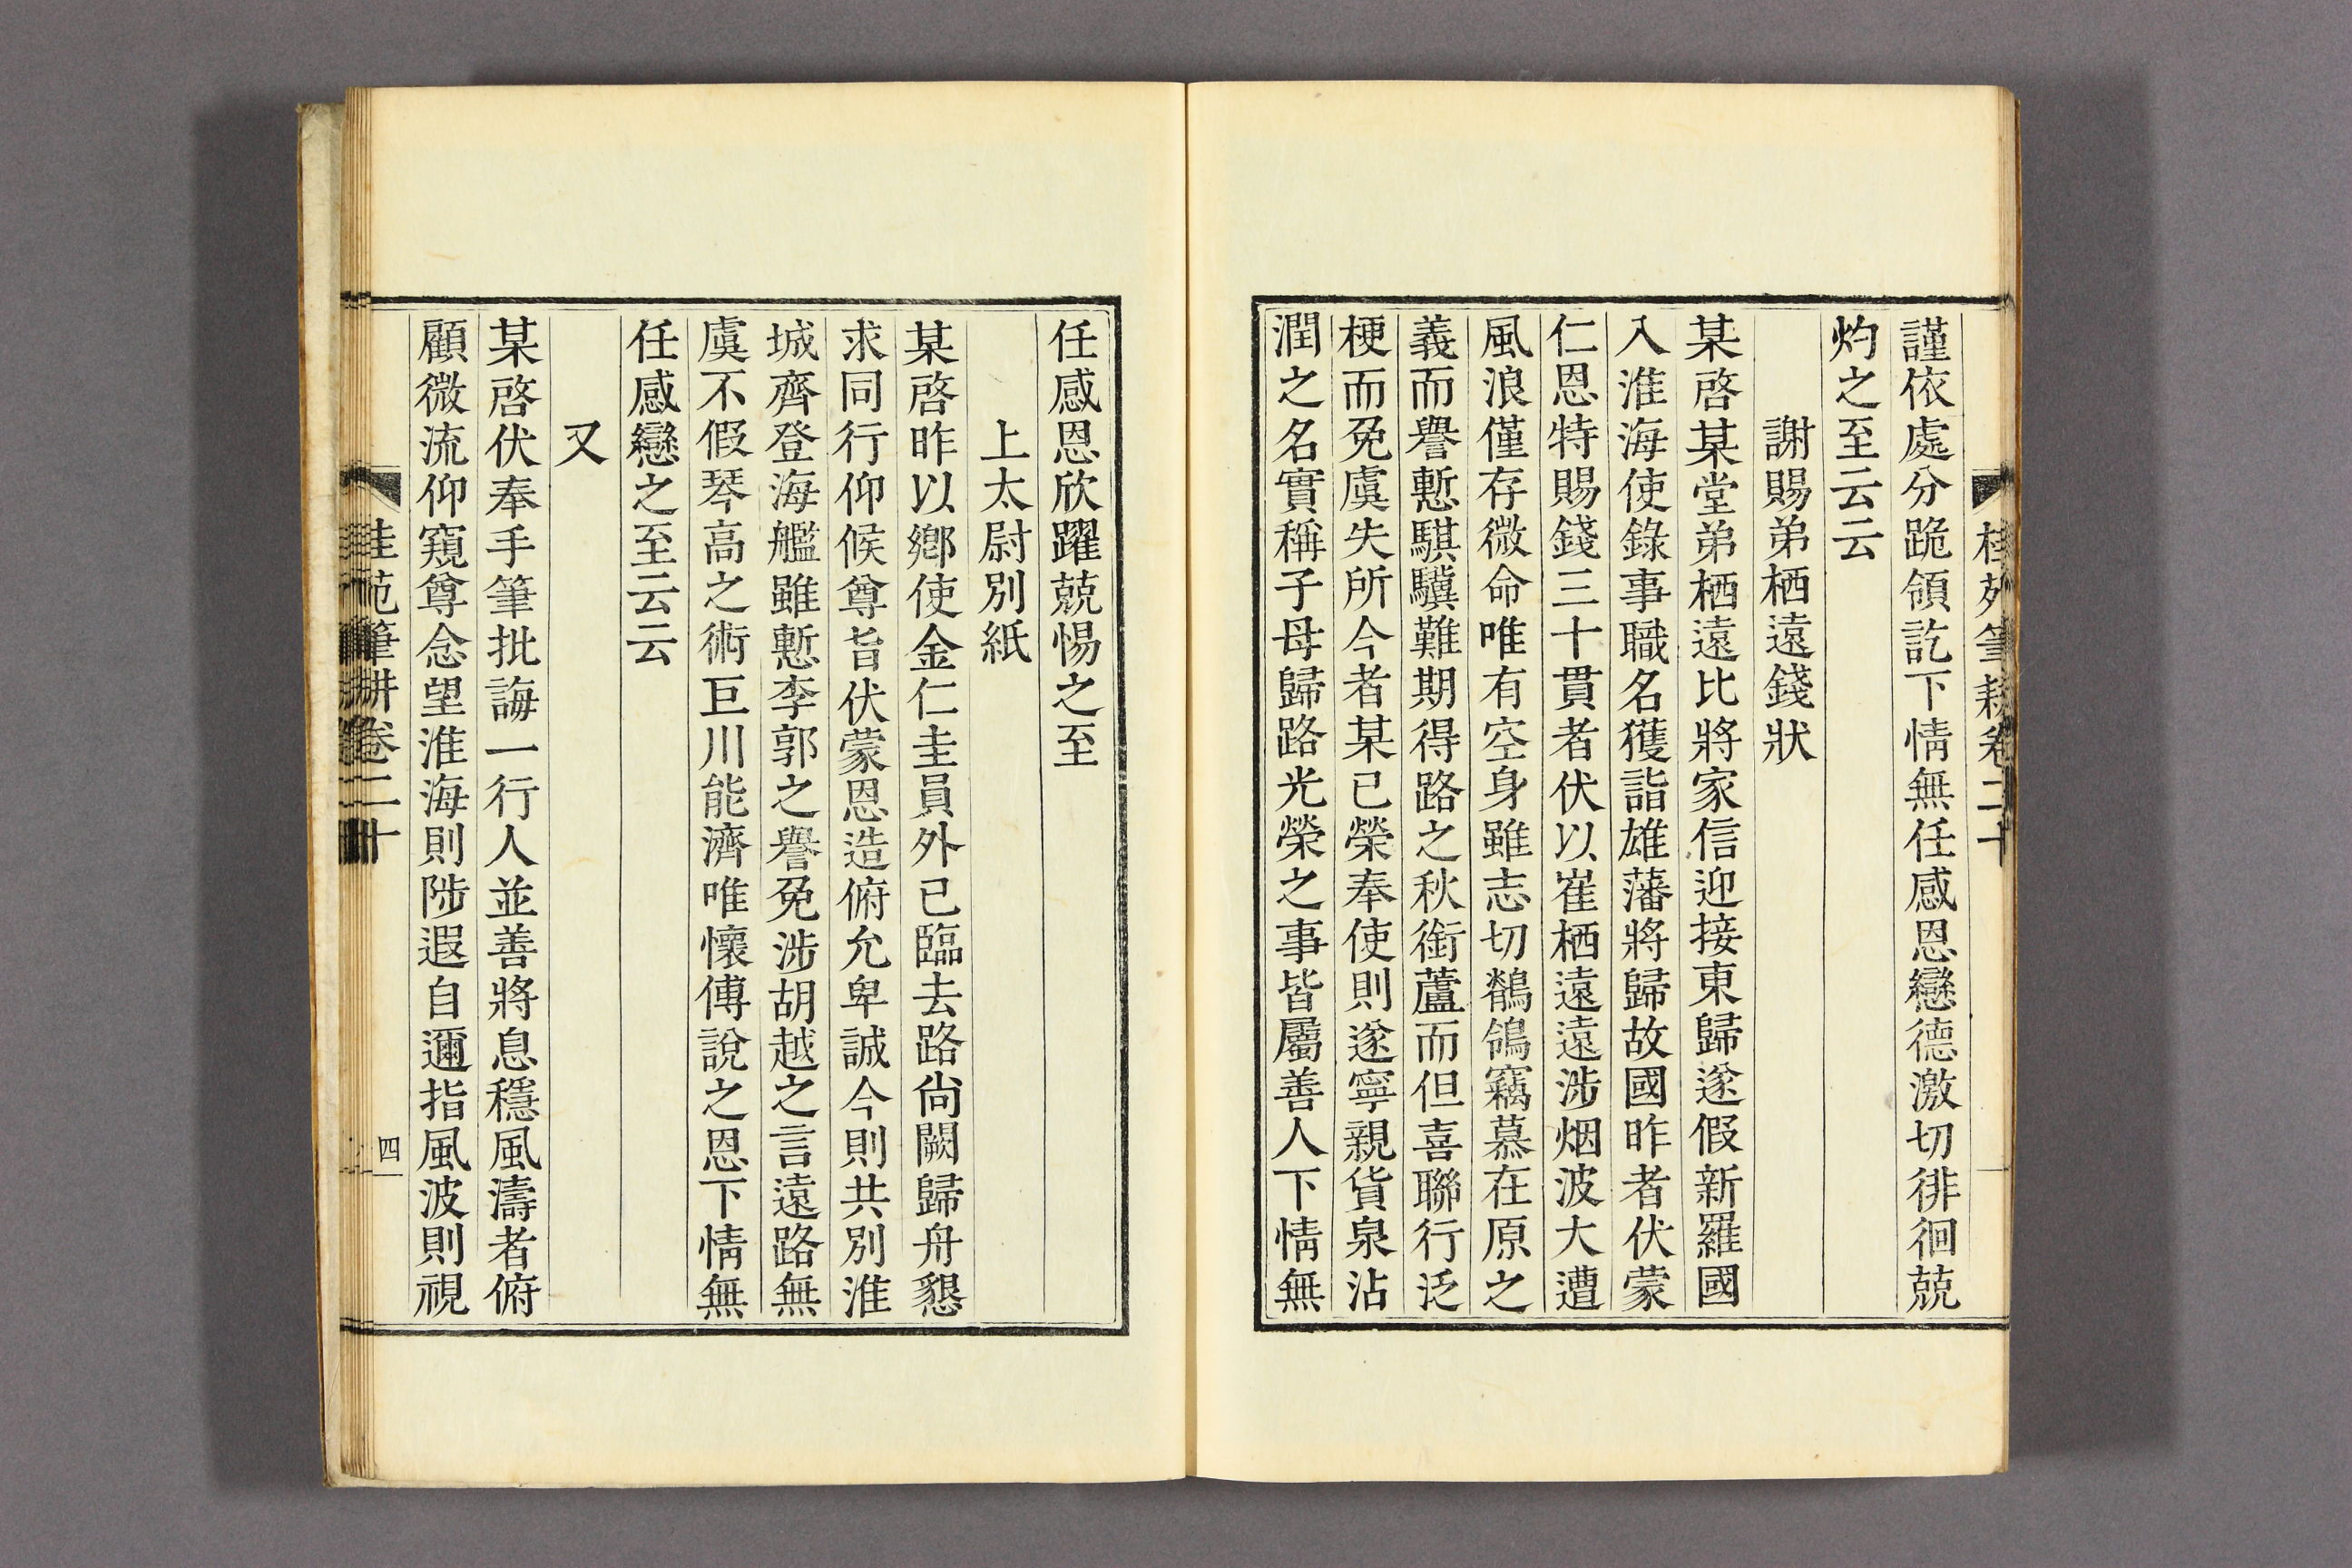 桂苑筆耕卷二十
謹依處分跪領訖下情無任感恩戀德激切徘徊兢
灼之至云云
謝賜弟栖遠錢狀
某啓某堂弟栖遠比將家信迎接東歸遂假新羅國
入淮海使錄事職名獲詣雄藩將歸故國昨者伏蒙
仁恩特賜錢三十貫者伏以崔栖遠遠涉烟波大遭
風浪僅存微命唯有空身雖志切鶺鴒竊慕在原之
義而譽慙騏驥難期得路之秋銜蘆而但喜聯行泛
梗而免虞失所今者某已榮奉使則遂寧親貨泉沾
潤之名實稱子母歸路光榮之事皆屬善人下情無
任感恩欣躍兢惕之至
上太尉別紙
某啓昨以鄉使金仁圭員外已臨去路尙闕歸舟懇
求同行仰候尊旨伏蒙恩造俯允卑誠今則共別淮
城齊登海艦雖慙李郭之譽免涉胡越之言遠路無
虞不假琴高之術巨川能濟唯懷傅說之恩下情無
任感戀之至云云
又
某啓伏奉手筆批誨一行人並善將息穩風濤者俯
顧微流仰窺尊念望淮海則陟遐自邇指風波則視
桂苑筆耕卷二十
四